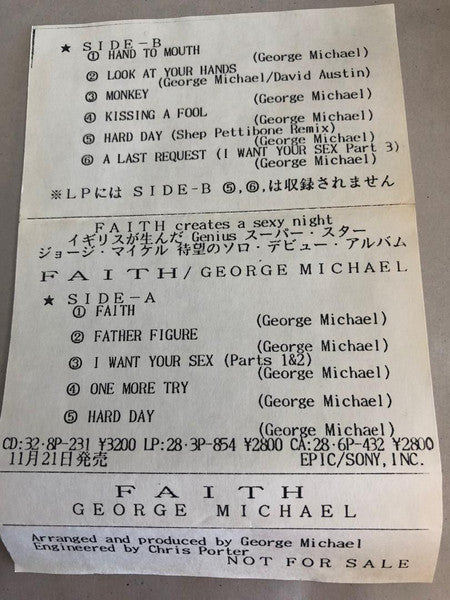 ★ SIDE-B
① HAND TO MOUTH
(George Michael)
② LOOK AT YOUR HANDS
(George Michael/David Austin)
③ MONKEY
(George Michael)
④ KISSING A FOOL
(George Michael)
⑤ HARD DAY (Shep Pettibone Remix)
(George Michael)
⑥ A LAST REQUEST (I WANT YOUR SEX Part 3)
(George Michael)
※LPには SIDE-B ⑤,⑥,は収録されません
FAITH creates a sexy night
イギリスが生んだ Genius スーパー・スター
ジョージ・マイケル 待望のソロ・デビュー・アルバム
FAITH/GEORGE MICHAEL
★ SIDE-A
① FAITH
(George Michael)
② FATHER FIGURE
(George Michael)
③ I WANT YOUR SEX (Parts 1&2)
(George Michael)
④ ONE MORE TRY
(George Michael)
⑤ HARD DAY
(George Michael)
CD:32·8P-231 ¥3200 LP:28·3P-854 ¥2800 CA:28·6P-432 ¥2800
11月21日発売 EPIC/SONY,INC.
FAITH
GEORGE MICHAEL
Arranged and produced by George Michael
Engineered by Chris Porter
NOT FOR SALE